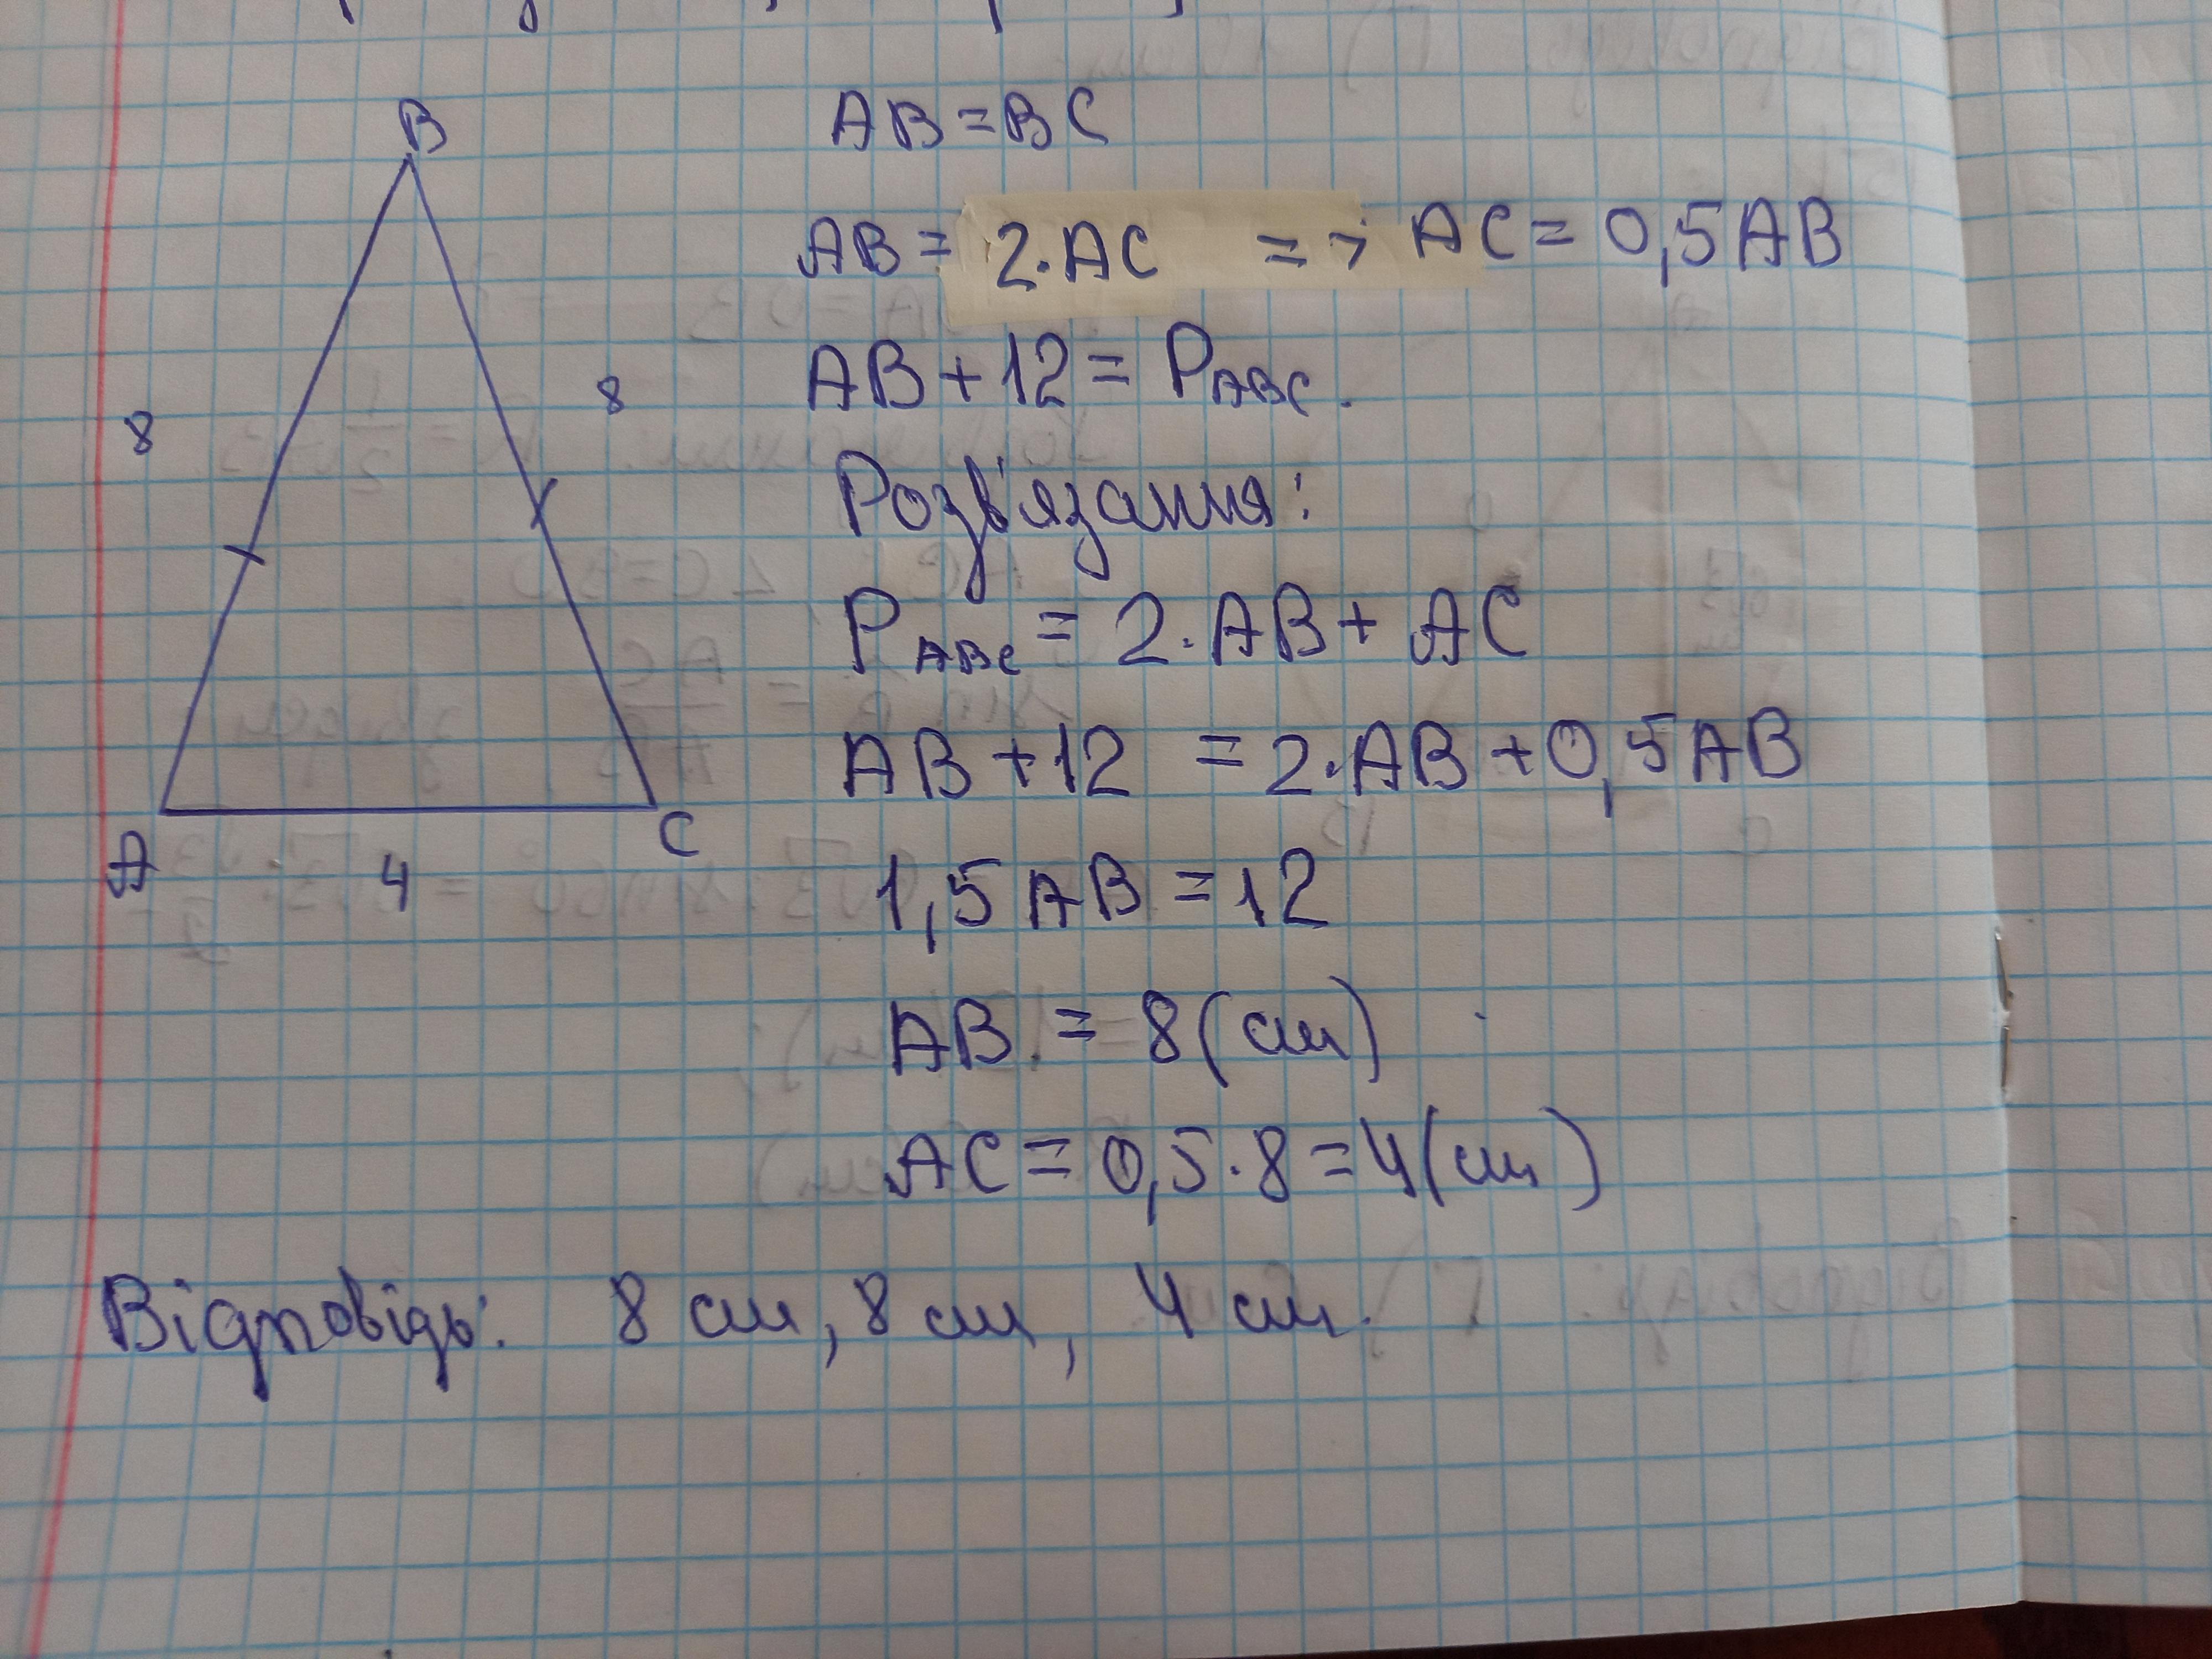 B
AB=BC
AB= 2·AC => AC= 0,5AB
AB+12= P_ABC.
8
8
Розв'язання:
P_ABC = 2·AB+ AC
AB+12 =2·AB+0,5AB
A
4
C
1,5AB=12
AB = 8(см)
AC=0,5·8=4(см)
Відповідь: 8 см, 8 см, 4 см.